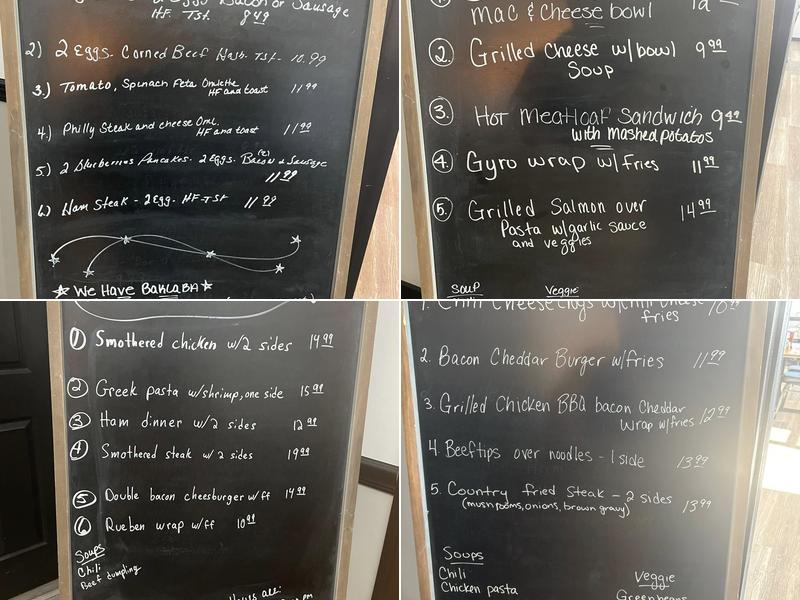 Bacon or Sausage
HF. Tst. 8 49
2) 2 Eggs. Corned Beef Hash. Tst. 10.99
3.) Tomato, Spinach Feta Omlette
HF and toast 11 99
4.) Philly Steak and cheese Oml.
HF and toast 11 99
5) 2 Blueberries Pancakes. 2 Eggs. Bacon (2) or Sausage
11 99
6) Ham Steak - 2 Egg. HF-Tst 11 99
We Have BAKLABA
Mac & Cheese bowl
2. Grilled Cheese w/bowl 9 99
Soup
3. Hot Meatloaf Sandwich 9 49
with mashed potatos
4. Gyro wrap w/fries 11 99
5. Grilled Salmon over 14 99
Pasta w/garlic sauce
and veggies
Soup Veggie
1 Smothered chicken w/2 sides 14 99
2 Greek pasta w/shrimp, one side 15 99
3 Ham dinner w/2 sides 12 99
4 Smothered steak w/2 sides 19 99
5 Double bacon cheesburger w/ff 14 99
6 Rueben wrap w/ff 10 99
Soups
Chili
Beef dumpling
1. Chili Cheese Dogs w/chili cheese 10 99
fries
2. Bacon Cheddar Burger w/fries 11 99
3. Grilled Chicken BBQ bacon Cheddar
Wrap w/fries 12 99
4. Beeftips over noodles - 1 side 13 99
5. Country fried steak - 2 sides
(mushrooms, onions, brown gravy) 13 99
Soups
Chili
Chicken pasta
Veggie
Greenbeans